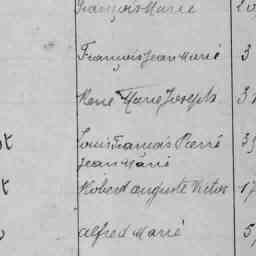 François Marie
François Jean Marie 3
René Marie Joseph 3
Louis François Pierre 39
Jean Marie
Robert auguste Victor 17
alfred Marié 5